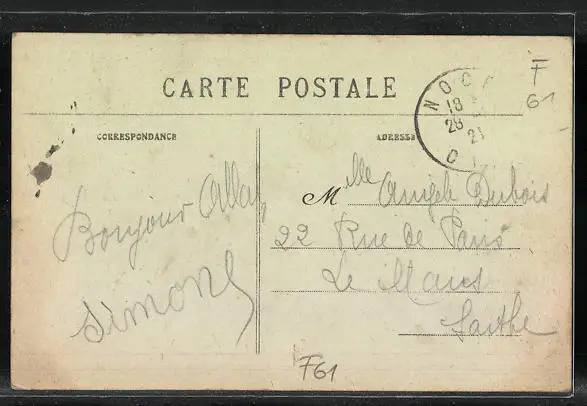 CARTE POSTALE
CORRESPONDANCE
ADRESSE
NOC
18
28
21
O
F
61
Bonjour
Simone
Mlle Angèle Dubois
22 Rue de Paris
Le Mans
Sarthe
F61